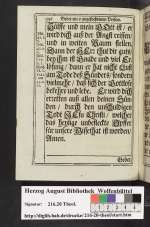 Gebet um e
Hülffe und mein Gott ist/ er
wird dich auß der Angst reissen
und in weiten Raum stellen.
Dann der HErr ist dir gut/
bey ihm ist Gnade und viel Er-
lösung/ dann er hat nicht Lust
am Tode des Sünders/ sondern
vielmehr/ daß sich der Gottlose
bekehre und lebe. Er wird dich
erretten auß allen deinen Sün-
den/ durch den unschuldigen
Tod JEsu Christi/ welcher
das heylige
für unsere Missethat ist worden/
Amen.
Gebet
Herzog August Bibliothek Wolfenbüttel
Signatur: 216.20 Theol.
http://diglib.hab.de/drucke/216-20-theol/start.htm